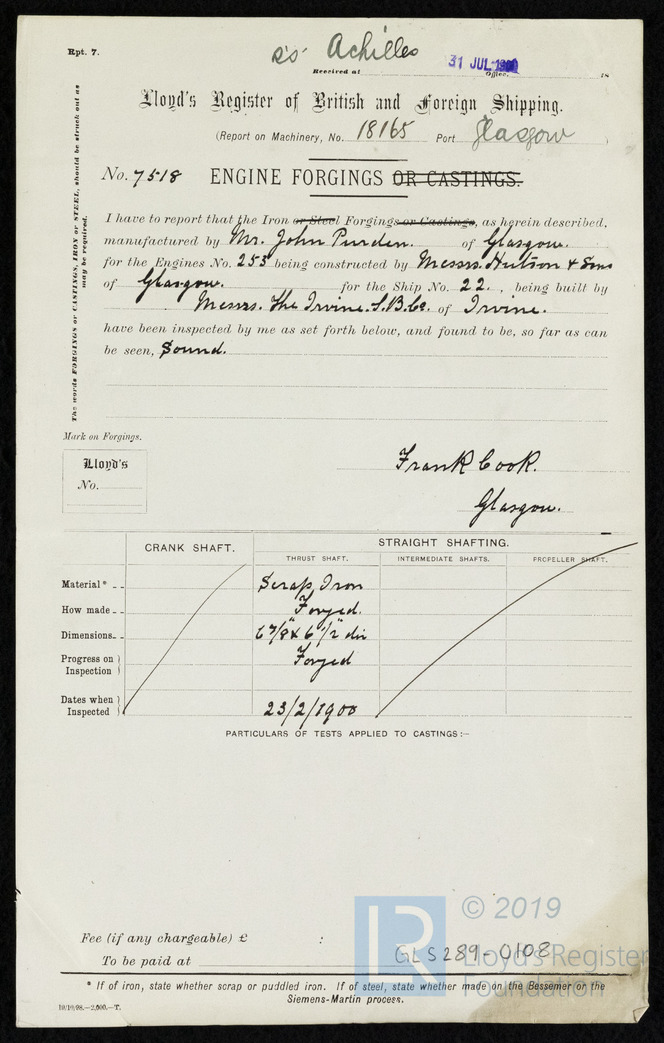 Rpt. 7.
s.s. Achilles
Received at Office, 18
31 JUL 1900
Lloyd's Register of British and Foreign Shipping.
(Report on Machinery, No. 18165 Port Glasgow )
No. 7518 ENGINE FORGINGS OR CASTINGS.
The words FORGINGS or CASTINGS, IRON or STEEL, should be struck out as
may be required.
I have to report that the Iron or Steel Forgings or Castings, as herein described,
manufactured by Mr. John Purden. of Glasgow.
for the Engines No. 253 being constructed by Messrs. Hutson & Sons
of Glasgow. for the Ship No. 22. , being built by
Messrs. The Irvine. S.B.Co. of Irvine.
have been inspected by me as set forth below, and found to be, so far as can
be seen, Sound.
Mark on Forgings.
Lloyd's
No.
Frank Cook.
Glasgow.
CRANK SHAFT. STRAIGHT SHAFTING.
THRUST SHAFT. INTERMEDIATE SHAFTS. PROPELLER SHAFT.
Material* Scrap Iron
How made Forged.
Dimensions 6 7/8" x 6 1/2" dia
Progress on Inspection Forged
Dates when Inspected 23/2/1900
PARTICULARS OF TESTS APPLIED TO CASTINGS:—
Fee (if any chargeable) £ :
To be paid at
GLS289-0108
© 2019
LR
Lloyd's Register
Foundation
* If of iron, state whether scrap or puddled iron. If of steel, state whether made on the Bessemer or the
Siemens-Martin process.
10/10/98.—2,000.—T.